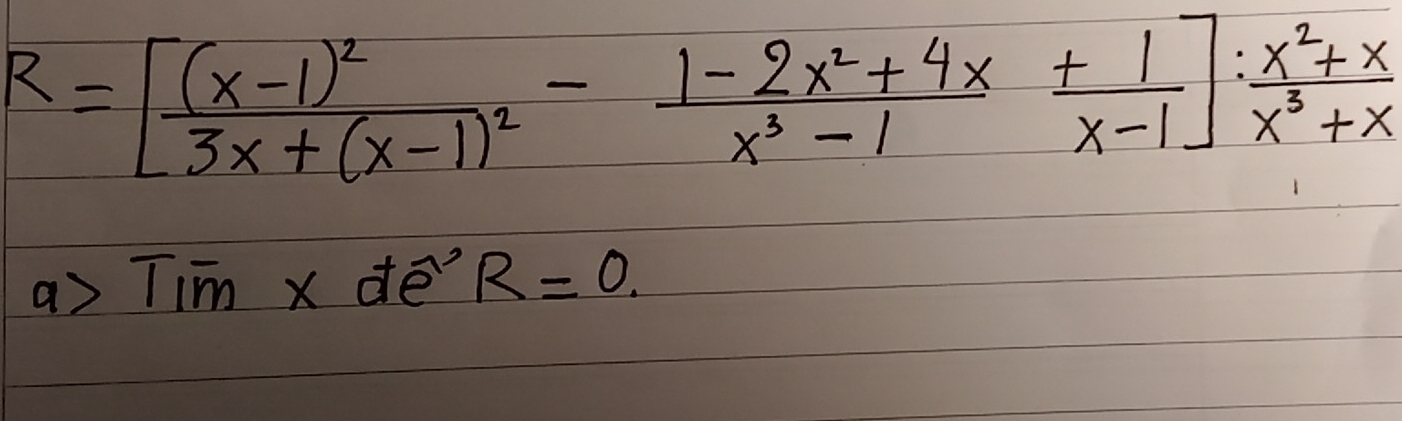 R = [(x-1)²/(3x+(x-1)²) - (1-2x²+4x)/(x³-1) + 1/(x-1)] : (x²+x)/(x³+x)
a> Tim̄ x để R = 0.